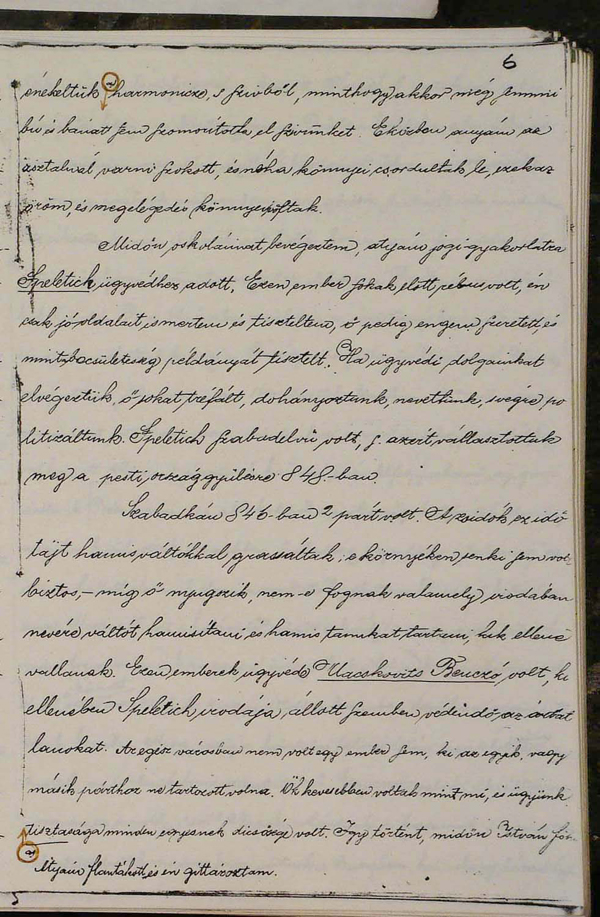 6
énekeltük harmonicze, s szivből, minthogy akkor még semmi
bú és bánat sem szomorította el szívünket. Eközben anyám az
asztalnál varrni szokott, és néha könnyei csordultak le, ezek az
öröm, és megelégedés könnyei voltak.
Midőn oskoláimat bevégeztem, atyám jogi gyakorlatra
Speletich ügyvédhez adott. Ezen ember sokak előtt rébus volt, én
csak jó oldalait ismertem és tiszteltem, ő pedig engem szeretett, és
mint becsületesség példányát tisztelt. Ha ügyvédi dolgainkat
elvégeztük, ő sokat tréfált, dohányoztunk, nevettünk, s végre po
litizáltunk. Speletich szabadelvü volt, s. azért választottuk
meg a pesti országgyülésre 848.-ban.
Szabadkán 846-ban 2 párt volt. A zsidók ez idő
tájt hamis váltókkal grassáltak; e környéken senki sem volt
biztos, – míg ő nyugszik, nem-e fognak valamely irodában
nevére váltót hamisítani és hamis tanukat tartani, kik ellene
vallanak. Ezen emberek ügyvéde Vacskovits Benczó, volt, ki
ellenében Speletich irodája, állott szemben védendő az ártat
lanokat. Az egész városban nem volt egy ember sem, ki az egyik, vagy
másik párthoz ne tartozott volna. Ők kevesebben voltak mint mi, és ügyünk
tisztasága minden egyesnek dicsősége volt. Igy történt, midőn István főr-
Atyám flautázott, és én gittároztam.